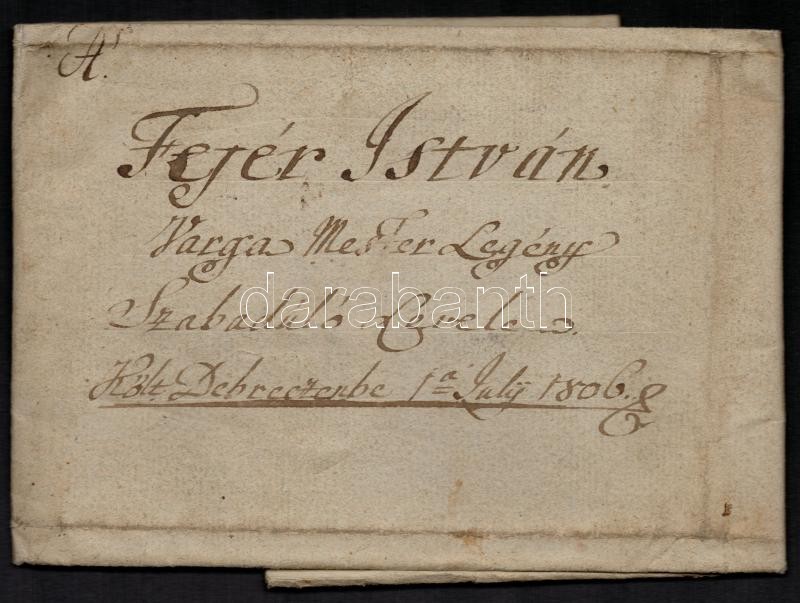 A.
Fejér István
Varga Mester Legény
Szabaduló Levele
Költ. Debreczenbe 1ª Julÿ 1806.
darabanth